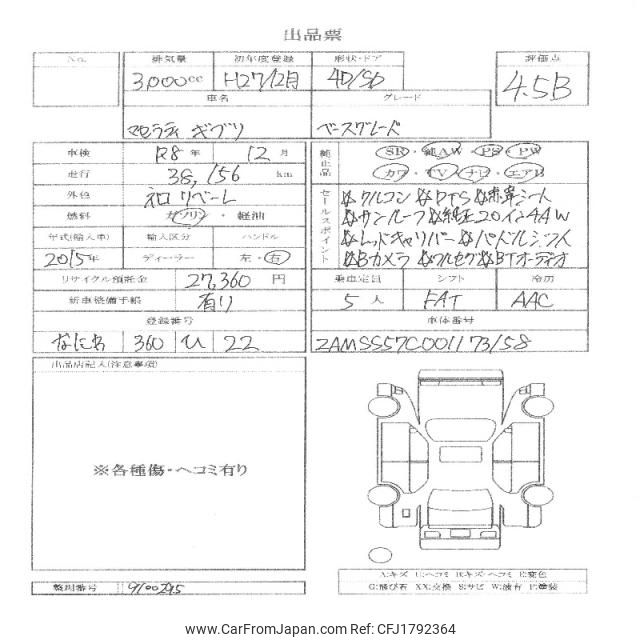 出品票
No. 排気量 初年度登録 形状・ドア 評価点
3,000cc H27/12月 4D/SD 4.5B
車名 グレード
マセラティ ギブリ ベースグレード
車検 R8年 12月 純正品 SR・純AW・PS・PW
走行 38,156 km カワ・TV・ナビ・エアB
外色 ネロ リベーレ セールスポイント ☆クルコン ☆DTS ☆赤革シート
燃料 ガソリン・軽油 ☆サンルーフ ☆純正20インチAW
年式(輸入車) 輸入区分 ハンドル ☆レッドキャリパー ☆パドルシフト
2015年 ディーラー 左・右 ☆Bカメラ ☆フルセグ ☆BTオーディオ
リサイクル預託金 27,360 円 乗車定員 シフト 冷房
新車整備手帳 有り 5人 FAT AAC
登録番号 車体番号
なにわ 360 ひ 22 ZAMSS57C001173158
出品店記入(注意事項)
※各種傷・ヘコミ有り
A:キズ U:ヘコミ B:キズ・ヘコミ E:変色
G:飛び石 XX:交換 S:サビ W:波有 P:塗装
整理番号 9100295
www.CarFromJapan.com - CFJ1792364